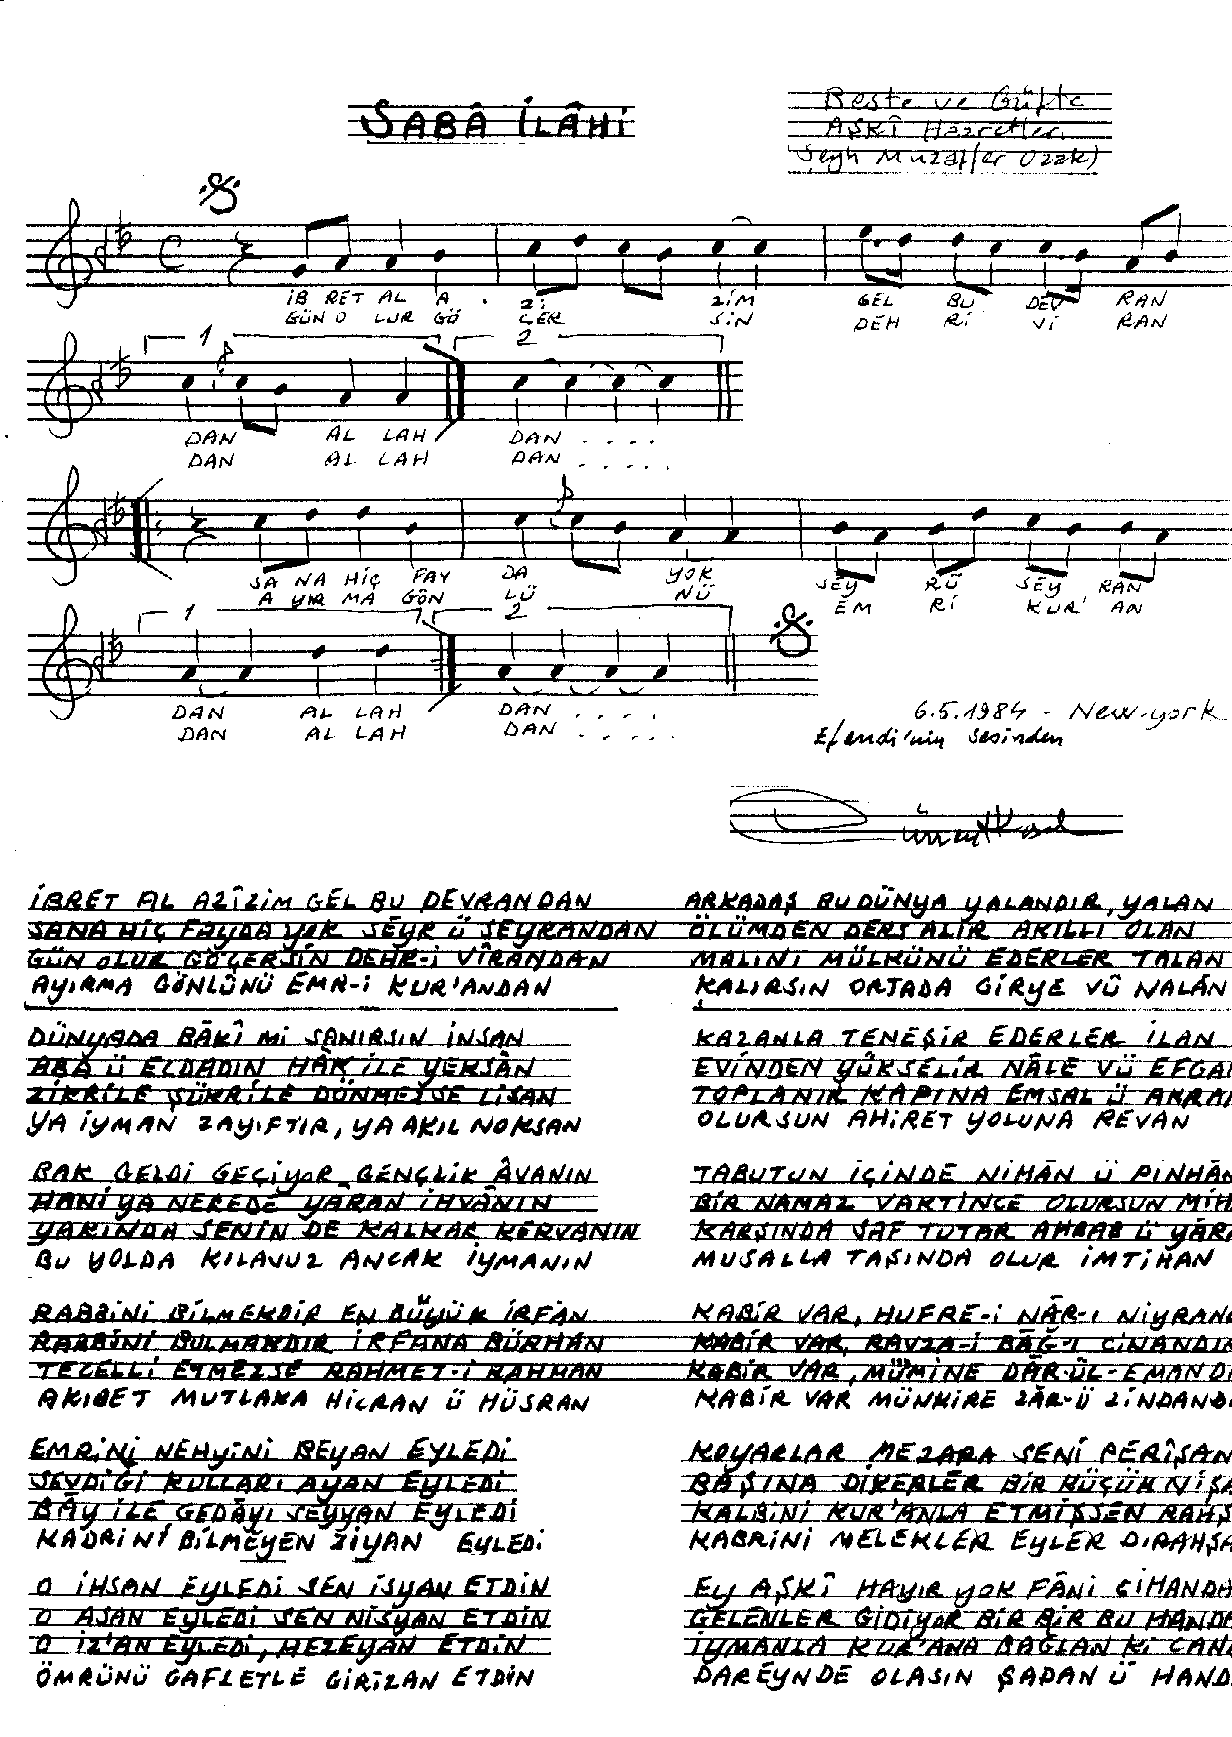 SABÂ İLÂHİ
Beste ve Güfte
AŞKÎ Hazretler
Şeyh Muzaffer Ozak)
İB RET AL A . Zİ ZİM GEL BU DEV RAN
GÜN O LUR GÖ ÇER SİN DEH Rİ Vİ RAN
1 2
DAN AL LAH DAN . . . .
DAN AL LAH DAN . . . .
SA NA HİÇ FAY DA YOK SEY RÜ SEY RAN
A YIR MA GÖN LÜ NÜ EM Rİ KUR' AN
1 2
DAN AL LAH DAN . . . .
DAN AL LAH DAN . . . . .
6.5.1984 - New-york
Efendi'nin sesinden
İBRET AL AZÎZİM GEL BU DEVRANDAN
SANA HİÇ FAYDA YOK SEYR Ü SEYRANDAN
GÜN OLUR GÖÇERSİN DEHR-İ VÎRANDAN
AYIRMA GÖNLÜNÜ EMR-İ KUR'ANDAN
DÜNYADA BÂKÎ Mİ SANIRSIN İNSAN
ABÂ Ü ECDADIN HÂK İLE YEKSÂN
ZİKRİLE ŞÜKRİLE DÖNMEZSE LİSAN
YA İYMAN ZAYIFTIR, YA AKIL NOKSAN
BAK GELDİ GEÇİYOR GENÇLİK ÂVANIN
HANİ YA NEREDE YÂRAN İHVÂNIN
YAKINDA SENİN DE KALKAR KERVANIN
BU YOLDA KILAVUZ ANCAK İYMANIN
RABBİNİ BİLMEKDİR EN BÜYÜK İRFÂN
RABBİNİ BULMAKDIR İRFANA BÜRHAN
TECELLİ ETMEZSE RAHMET-İ RAHMAN
AKIBET MUTLAKA HİCRAN Ü HÜSRAN
EMRİNİ NEHYİNİ BEYAN EYLEDİ
SEVDİĞİ KULLARI AYAN EYLEDİ
BÂY İLE GEDÂYI SEYYAN EYLEDİ
KADRİNİ BİLMEYEN ZİYAN EYLEDİ
O İHSAN EYLEDİ SEN İSYAN ETDİN
O ASAN EYLEDİ SEN NİSYAN ETDİN
O İZ'AN EYLEDİ, HEZEYAN ETDİN
ÖMRÜNÜ GAFLETLE GİRİZAN ETDİN
ARKADAŞ BU DÜNYA YALANDIR, YALAN
ÖLÜMDEN DERS ALIR AKILLI OLAN
MALINI MÜLKÜNÜ EDERLER TALAN
KALIRSIN ORTADA GİRYE VÜ NALÂN
KAZANLA TENEŞİR EDERLER İLAN
EVİNDEN YÜKSELİR NÂLE VÜ EFGA
TOPLANIR KAPINA EMSAL Ü AKRA
OLURSUN AHİRET YOLUNA REVAN
TABUTUN İÇİNDE NİHÂN Ü PİNHÂN
BİR NAMAZ VAKTİNCE OLURSUN MİH
KARŞINDA SAF TUTAR AHBAB Ü YÂRA
MUSALLA TAŞINDA OLUR İMTİHAN
KABİR VAR, HUFRE-İ NÂR-I NİYRAND
KABİR VAR, RAVZA-İ BÂĞ-I CİNANDIR
KABİR VAR, MÜMİNE DÂR-ÜL-EMANDI
KABİR VAR MÜNKİRE ZÂR-Ü ZİNDAND
KOYARLAR MEZARA SENİ PERÎŞAN
BAŞINA DİKERLER BİR KÜÇÜK NİŞA
KALBİNİ KUR'ANLA ETMİŞSEN RAHŞ
KABRİNİ MELEKLER EYLER DIRAHŞA
EY AŞKÎ HAYIR YOK FÂNİ CİHANDA
GELENLER GİDİYOR BİR BİR BU HANDA
İYMANLA KUR'ANA BAĞLAN Kİ CAN
DAREYNDE OLASIN ŞADAN Ü HAND